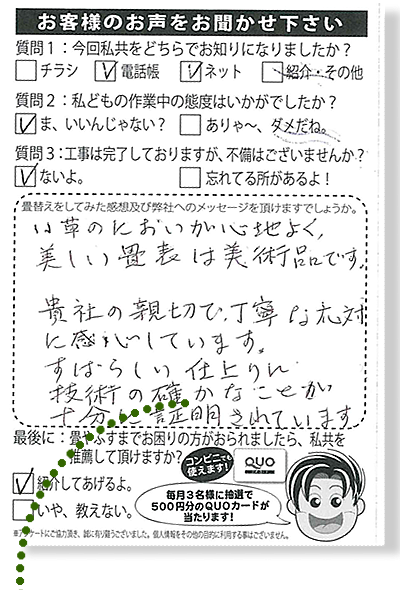 お客様のお声をお聞かせ下さい
質問1：今回私共をどちらでお知りになりましたか？
チラシ 電話帳 ネット 紹介・その他
質問2：私どもの作業中の態度はいかがでしたか？
ま、いいんじゃない？ ありゃ〜、ダメだね。
質問3：工事は完了しておりますが、不備はございませんか？
ないよ。 忘れてる所があるよ！
畳替えをしてみた感想及び弊社へのメッセージを頂けますでしょうか。
い草のにおいが心地よく、
美しい畳表は美術品です。
貴社の親切で、丁寧な応対
に感心しています。
すばらしい仕上りに
技術の確かなことが
十分に証明されています
最後に：畳やふすまでお困りの方がおられましたら、私共を
推薦して頂けますか？
コンビニでも
使えます！
QUO
紹介してあげるよ。
いや、教えない。
毎月3名様に抽選で
500円分のQUOカードが
当たります！
※アンケートにご協力頂き、誠に有り難うございました。個人情報をその他の目的に利用する事はございません。